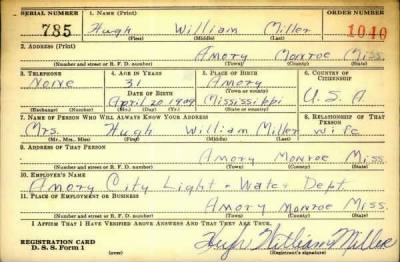 SERIAL NUMBER 1. NAME (Print) ORDER NUMBER
785 Hugh William Miller 1040
(First) (Middle) (Last)
2. ADDRESS (Print)
Amory Monroe Miss.
(Number and street or R. F. D. number) (Town) (County) (State)
3. TELEPHONE 4. AGE IN YEARS 5. PLACE OF BIRTH 6. COUNTRY OF CITIZENSHIP
None 31 Amory
DATE OF BIRTH (Town or county)
April 20 1909 Mississippi U.S.A.
(Exchange) (Number) (Mo.) (Day) (Yr.) (State or country)
7. NAME OF PERSON WHO WILL ALWAYS KNOW YOUR ADDRESS 8. RELATIONSHIP OF THAT PERSON
Mrs. Hugh William Miller wife
(Mr., Mrs., Miss) (First) (Middle) (Last)
9. ADDRESS OF THAT PERSON
Amory Monroe Miss.
(Number and street or R. F. D. number) (Town) (County) (State)
10. EMPLOYER'S NAME
Amory City Light - Water Dept.
11. PLACE OF EMPLOYMENT OR BUSINESS
Amory Monroe Miss.
(Number and street or R. F. D. number) (Town) (County) (State)
I AFFIRM THAT I HAVE VERIFIED ABOVE ANSWERS AND THAT THEY ARE TRUE.
REGISTRATION CARD Hugh William Miller
D. S. S. Form 1 (over) (Registrant's signature)